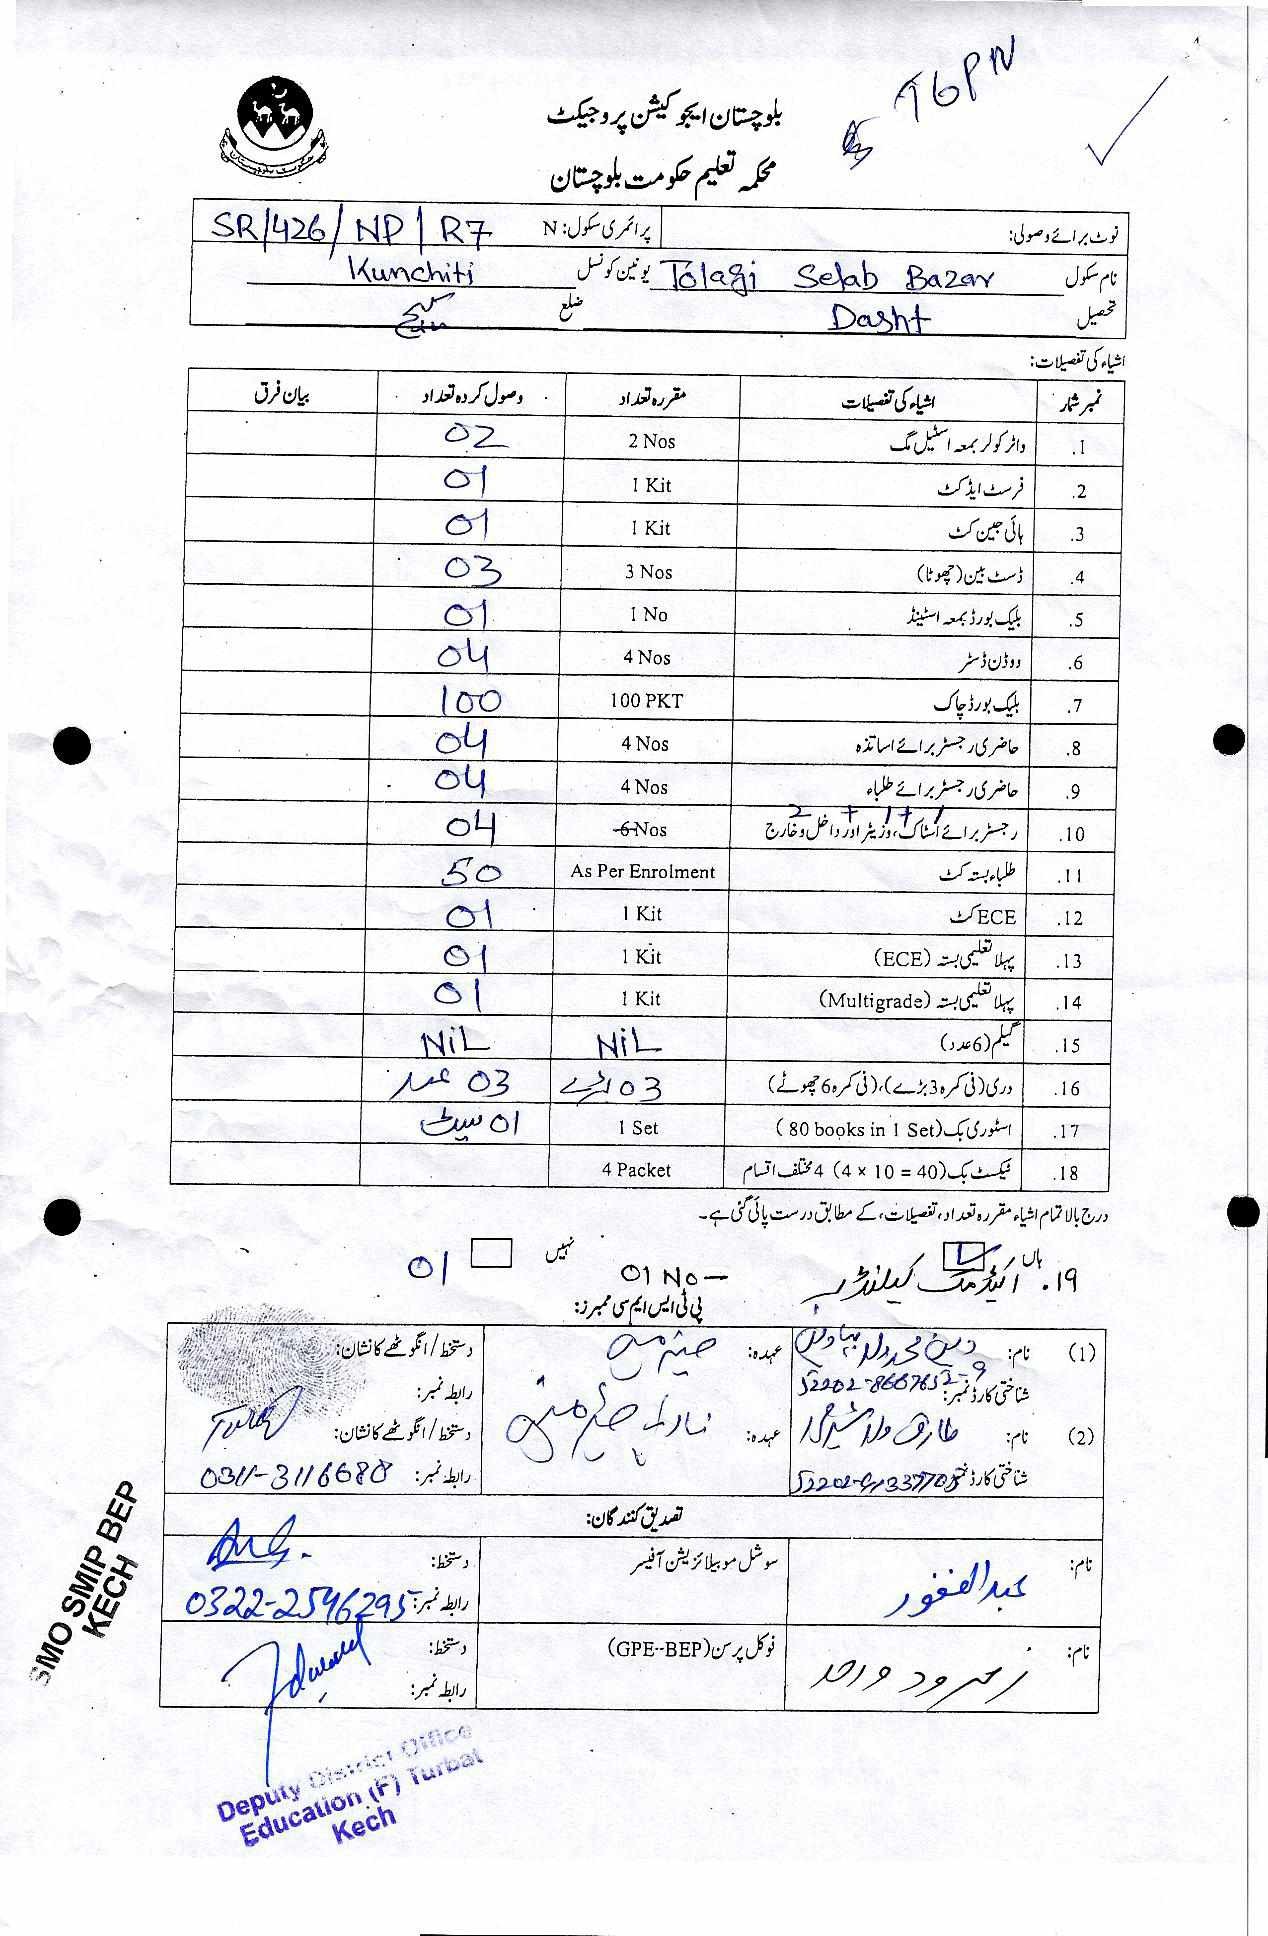 TGPN
بلوچستان ایجوکیشن پروجیکٹ
محکمہ تعلیم حکومت بلوچستان
نوٹ برائے وصولی: پرائمری سکول: N SR/426/NP/R7
نام سکول Tolagi Selab Bazar یونین کونسل Kunchiti
تحصیل Dasht ضلع کیچ
اشیاء کی تفصیلات:
نمبر شمار اشیاء کی تفصیلات مقررہ تعداد وصول کردہ تعداد بیان فرق
1. واٹر کولر بمعہ اسٹیل مگ 2 Nos 02
2. فرسٹ ایڈ کٹ 1 Kit 01
3. ہائی جین کٹ 1 Kit 01
4. ڈسٹ بین (چھوٹا) 3 Nos 03
5. بلیک بورڈ بمعہ اسٹینڈ 1 No 01
6. ووڈن ڈسٹر 4 Nos 04
7. بلیک بورڈ چاک 100 PKT 100
8. حاضری رجسٹر برائے اساتذہ 4 Nos 04
9. حاضری رجسٹر برائے طلباء 4 Nos 04
2 + 1 + 1
10. رجسٹر برائے اسٹاک، وزیٹر اور داخل و خارج 6 Nos 04
11. طلباء بستہ کٹ As Per Enrolment 50
12. ECE کٹ 1 Kit 01
13. پہلا تعلیمی بستہ (ECE) 1 Kit 01
14. پہلا تعلیمی بستہ (Multigrade) 1 Kit 01
15. گلیم (6 عدد) NiL NiL
16. دری (فی کمرہ 3 بڑے)، (فی کمرہ 6 چھوٹے) 03 بڑے 03 عدد
17. اسٹوری بک (80 books in 1 Set) 1 Set 01 سیٹ
18. ٹیکسٹ بک (4 x 10 = 40) 4 مختلف اقسام 4 Packet
درج بالا تمام اشیاء مقررہ تعداد، تفصیلات، کے مطابق درست پائی گئی ہے۔
ہاں نہیں
19. اکیڈمک کیلنڈر 01 No 01
پی ٹی ایس ایم سی ممبرز:
(1) نام: عہدہ: دستخط/انگوٹھے کا نشان:
شناختی کارڈ نمبر: رابطہ نمبر:
(2) نام: طارق ولد عہدہ: دستخط/انگوٹھے کا نشان: Tariq
شناختی کارڈ نمبر: رابطہ نمبر: 0311-3116688
تصدیق کنندگان:
نام: عبدالغفور سوشل موبیلائزیشن آفیسر دستخط:
رابطہ نمبر: 0322-2546295
نام: فوکل پرسن (GPE-BEP) دستخط:
رابطہ نمبر:
SMO SMIP BEP
KECH
Deputy District Office
Education (F) Turbat
Kech